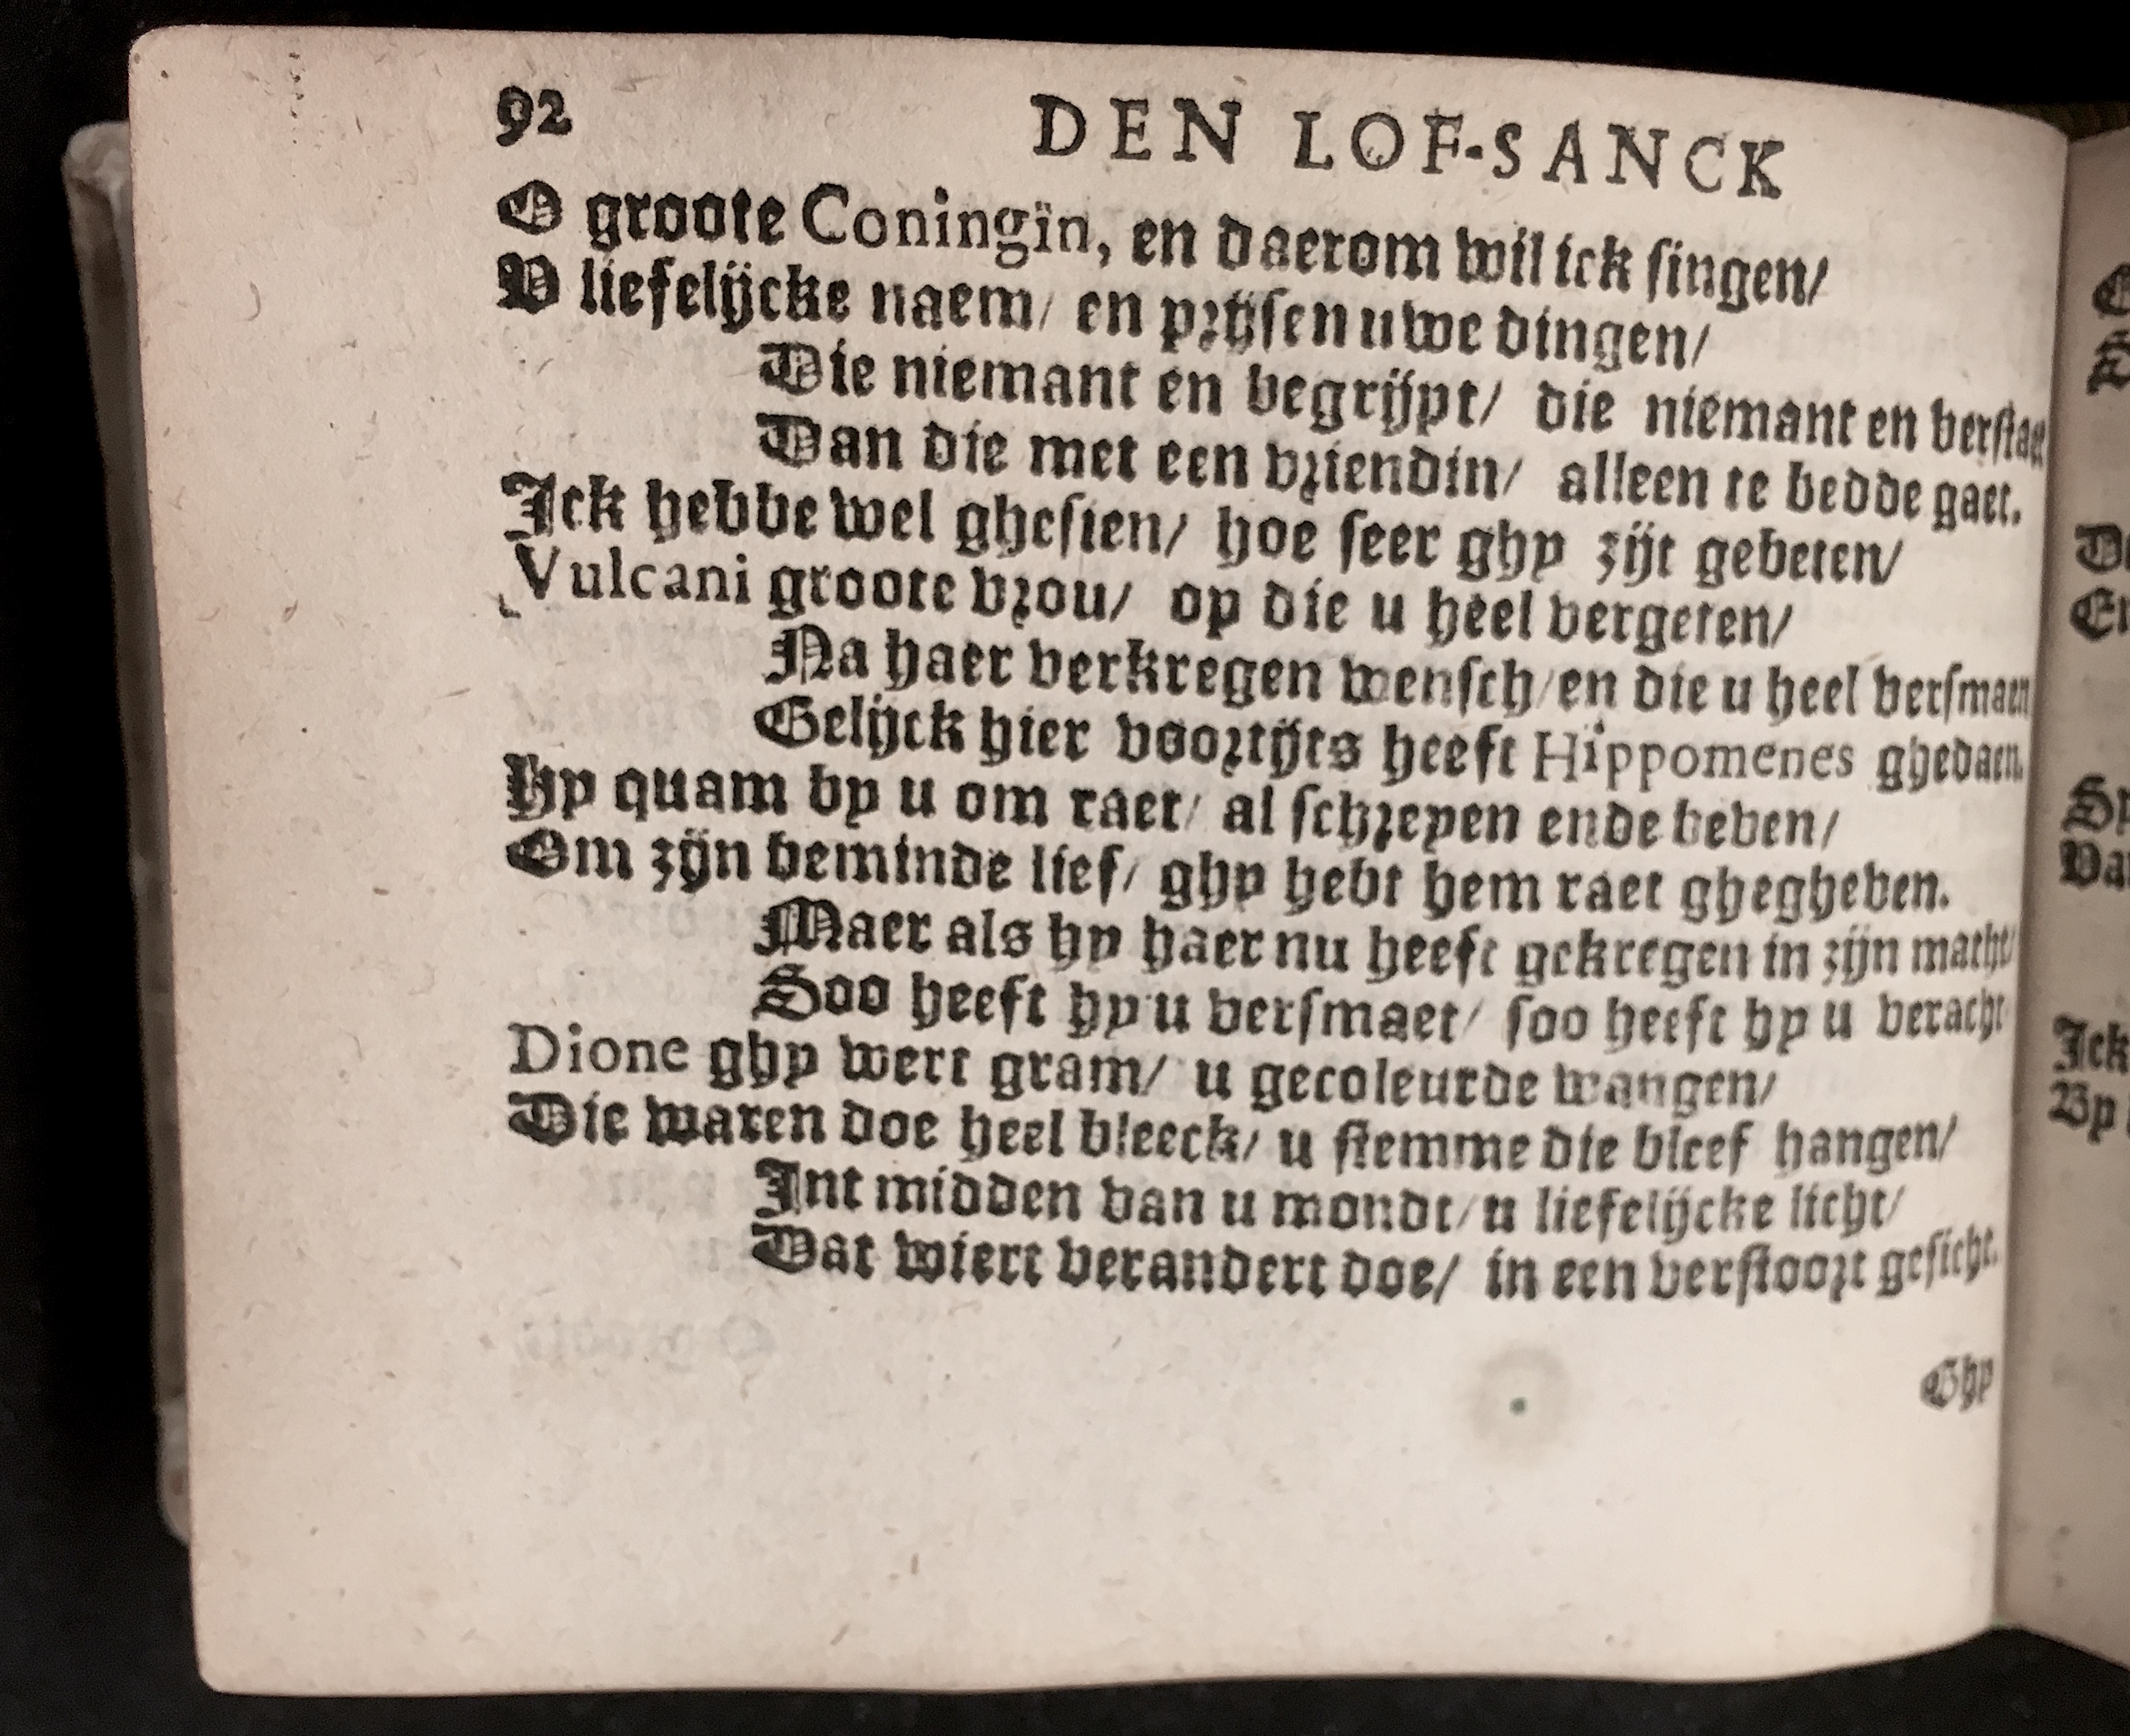 92 DEN LOF-SANCK
O groote Coningïn, en daerom wil ick singen/
V liefelijcke naem/ en prijsen uwe dingen/
Die niemant en begrijpt/ die niemant en verstaet
Dan die met een vriendin/ alleen te bedde gaet.
Ick hebbe wel ghesien/ hoe seer ghy zijt gebeten/
Vulcani groote vrou/ op die u heel vergeten/
Na haer verkregen wensch/en die u heel versmaen
Gelijck hier voortijts heeft Hippomenes ghedaen.
Hy quam by u om raet/ al schreyen ende beven/
Om zijn beminde lief/ ghy hebt hem raet ghegheven.
Maer als hy haer nu heeft gekregen in zijn macht/
Soo heeft hy u versmaet/ soo heeft hy u veracht
Dione ghy wert gram/ u gecoleurde wangen/
Die waren doe heel bleeck/ u stemme die bleef hangen/
Int midden van u mondt/u liefelijcke licht/
Dat wiert verandert doe/ in een verstoort gesicht.
Ghy
Ick
By